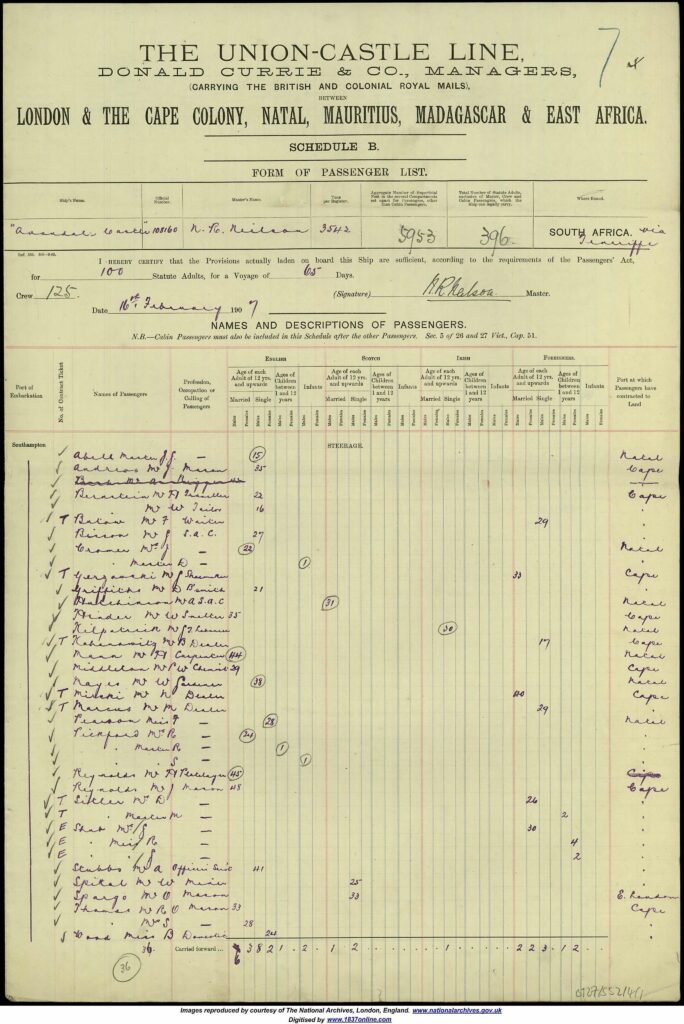 7
THE UNION-CASTLE LINE,
DONALD CURRIE & CO., MANAGERS,
(CARRYING THE BRITISH AND COLONIAL ROYAL MAILS),
BETWEEN
LONDON & THE CAPE COLONY, NATAL, MAURITIUS, MADAGASCAR & EAST AFRICA.
SCHEDULE B.
FORM OF PASSENGER LIST.
Ship's Name. Official Number. Master's Name. Tons per Register. Aggregate Number of Superficial Feet in the several Compartments set apart for Passengers, other than Cabin Passengers. Total Number of Statute Adults, exclusive of Master, Crew and Cabin Passengers, which the Ship can legally carry. Where Bound.
"Avondale Castle" 108160 N. R. Neilson 3542 5953 396. SOUTH AFRICA. via Teneriffe
I HEREBY CERTIFY that the Provisions actually laden on board this Ship are sufficient, according to the requirements of the Passengers' Act,
for 100 Statute Adults, for a Voyage of 65 Days.
Crew 125. (Signature) Master.
Date 16th February 1907
NAMES AND DESCRIPTIONS OF PASSENGERS.
N.B.—Cabin Passengers must also be included in this Schedule after the other Passengers. Sec. 5 of 26 and 27 Vict., Cap. 51.
Port of Embarkation No. of Contract Ticket Names of Passengers Profession, Occupation or Calling of Passengers ENGLISH SCOTCH IRISH FOREIGNERS Port at which Passengers have contracted to Land
Age of each Adult of 12 yrs. and upwards Ages of Children between 1 and 12 years Infants Age of each Adult of 12 yrs. and upwards Ages of Children between 1 and 12 years Infants Age of each Adult of 12 yrs. and upwards Ages of Children between 1 and 12 years Infants Age of each Adult of 12 yrs. and upwards Ages of Children between 1 and 12 years Infants
Married Single Married Single Married Single Married Single
Southampton STEERAGE.
Abell Master J J — 15 Natal
Andreas Mr J Mason 35 Cape
Bernstein Mr H Traveller 22 Cape
" Mr W Tailor 16 "
T Mr F 29 "
Bisson Mr J S.A.C. 27 "
Cromer Mrs J — 22 Natal
" Master D — 1 "
T Mr J 33 Cape
Griffiths Mr D 21 "
Hutchinson Mr A S.A.C 31 Natal
Hinder Mr W Smelter 35 Cape
Kilpatrick Mr J 30 Natal
T Mr B Dealer 17 Cape
Mann Mr H Carpenter 44 Natal
Middleton Mr P W Chemist 29 Cape
Mayes Mr W 38 Natal
T Minski Mr N Dealer 40 Cape
T Marcus Mr M Dealer 29 "
Pearson Miss F — 28 Natal
Pickford Mrs R — 24 "
" Master R — 1 "
" " S — 1 "
Reynolds Mr H 45 Cape
Reynolds Mr J Mason 48 Cape
T Mrs D — 26 "
T " Master M — 2 "
E Mrs J — 30 "
E " Miss R — 4 "
E " " S — 2 "
Stubbs Mr A 41 "
Spital Mr W Miner 25 "
Spargo Mr O Mason 33 E. London
Thomas Mr R O Mason 33 Cape
" Mrs S — 28 "
Wood Miss B Domestic 24 "
36. Carried forward ... 3 8 2 1 2 1 2 1 2 2 3 1 2
36
BT27/552/4(1
Images reproduced by courtesy of The National Archives, London, England. www.nationalarchives.gov.uk
Digitised by www.1837online.com